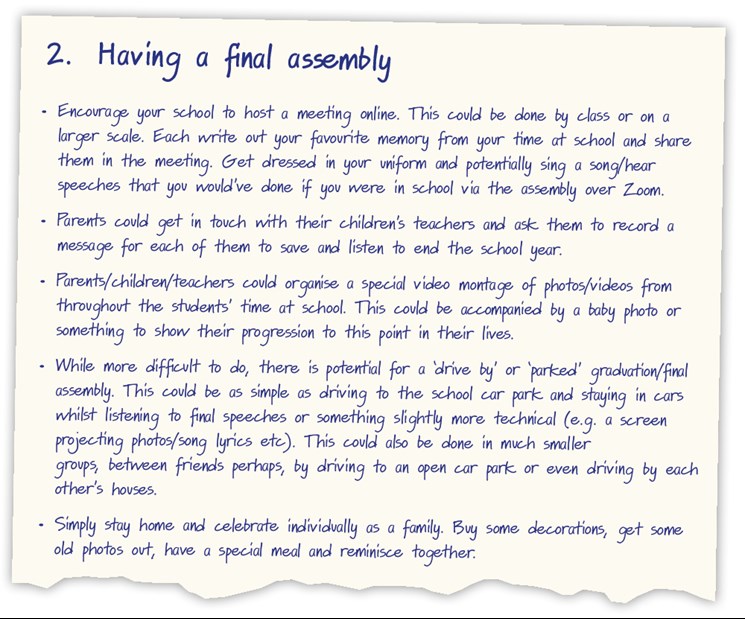 2. Having a final assembly
• Encourage your school to host a meeting online. This could be done by class or on a
larger scale. Each write out your favourite memory from your time at school and share
them in the meeting. Get dressed in your uniform and potentially sing a song/hear
speeches that you would've done if you were in school via the assembly over Zoom.
• Parents could get in touch with their children's teachers and ask them to record a
message for each of them to save and listen to end the school year.
• Parents/children/teachers could organise a special video montage of photos/videos from
throughout the students' time at school. This could be accompanied by a baby photo or
something to show their progression to this point in their lives.
• While more difficult to do, there is potential for a 'drive by' or 'parked' graduation/final
assembly. This could be as simple as driving to the school car park and staying in cars
whilst listening to final speeches or something slightly more technical (e.g. a screen
projecting photos/song lyrics etc). This could also be done in much smaller
groups, between friends perhaps, by driving to an open car park or even driving by each
other's houses.
• Simply stay home and celebrate individually as a family. Buy some decorations, get some
old photos out, have a special meal and reminisce together.